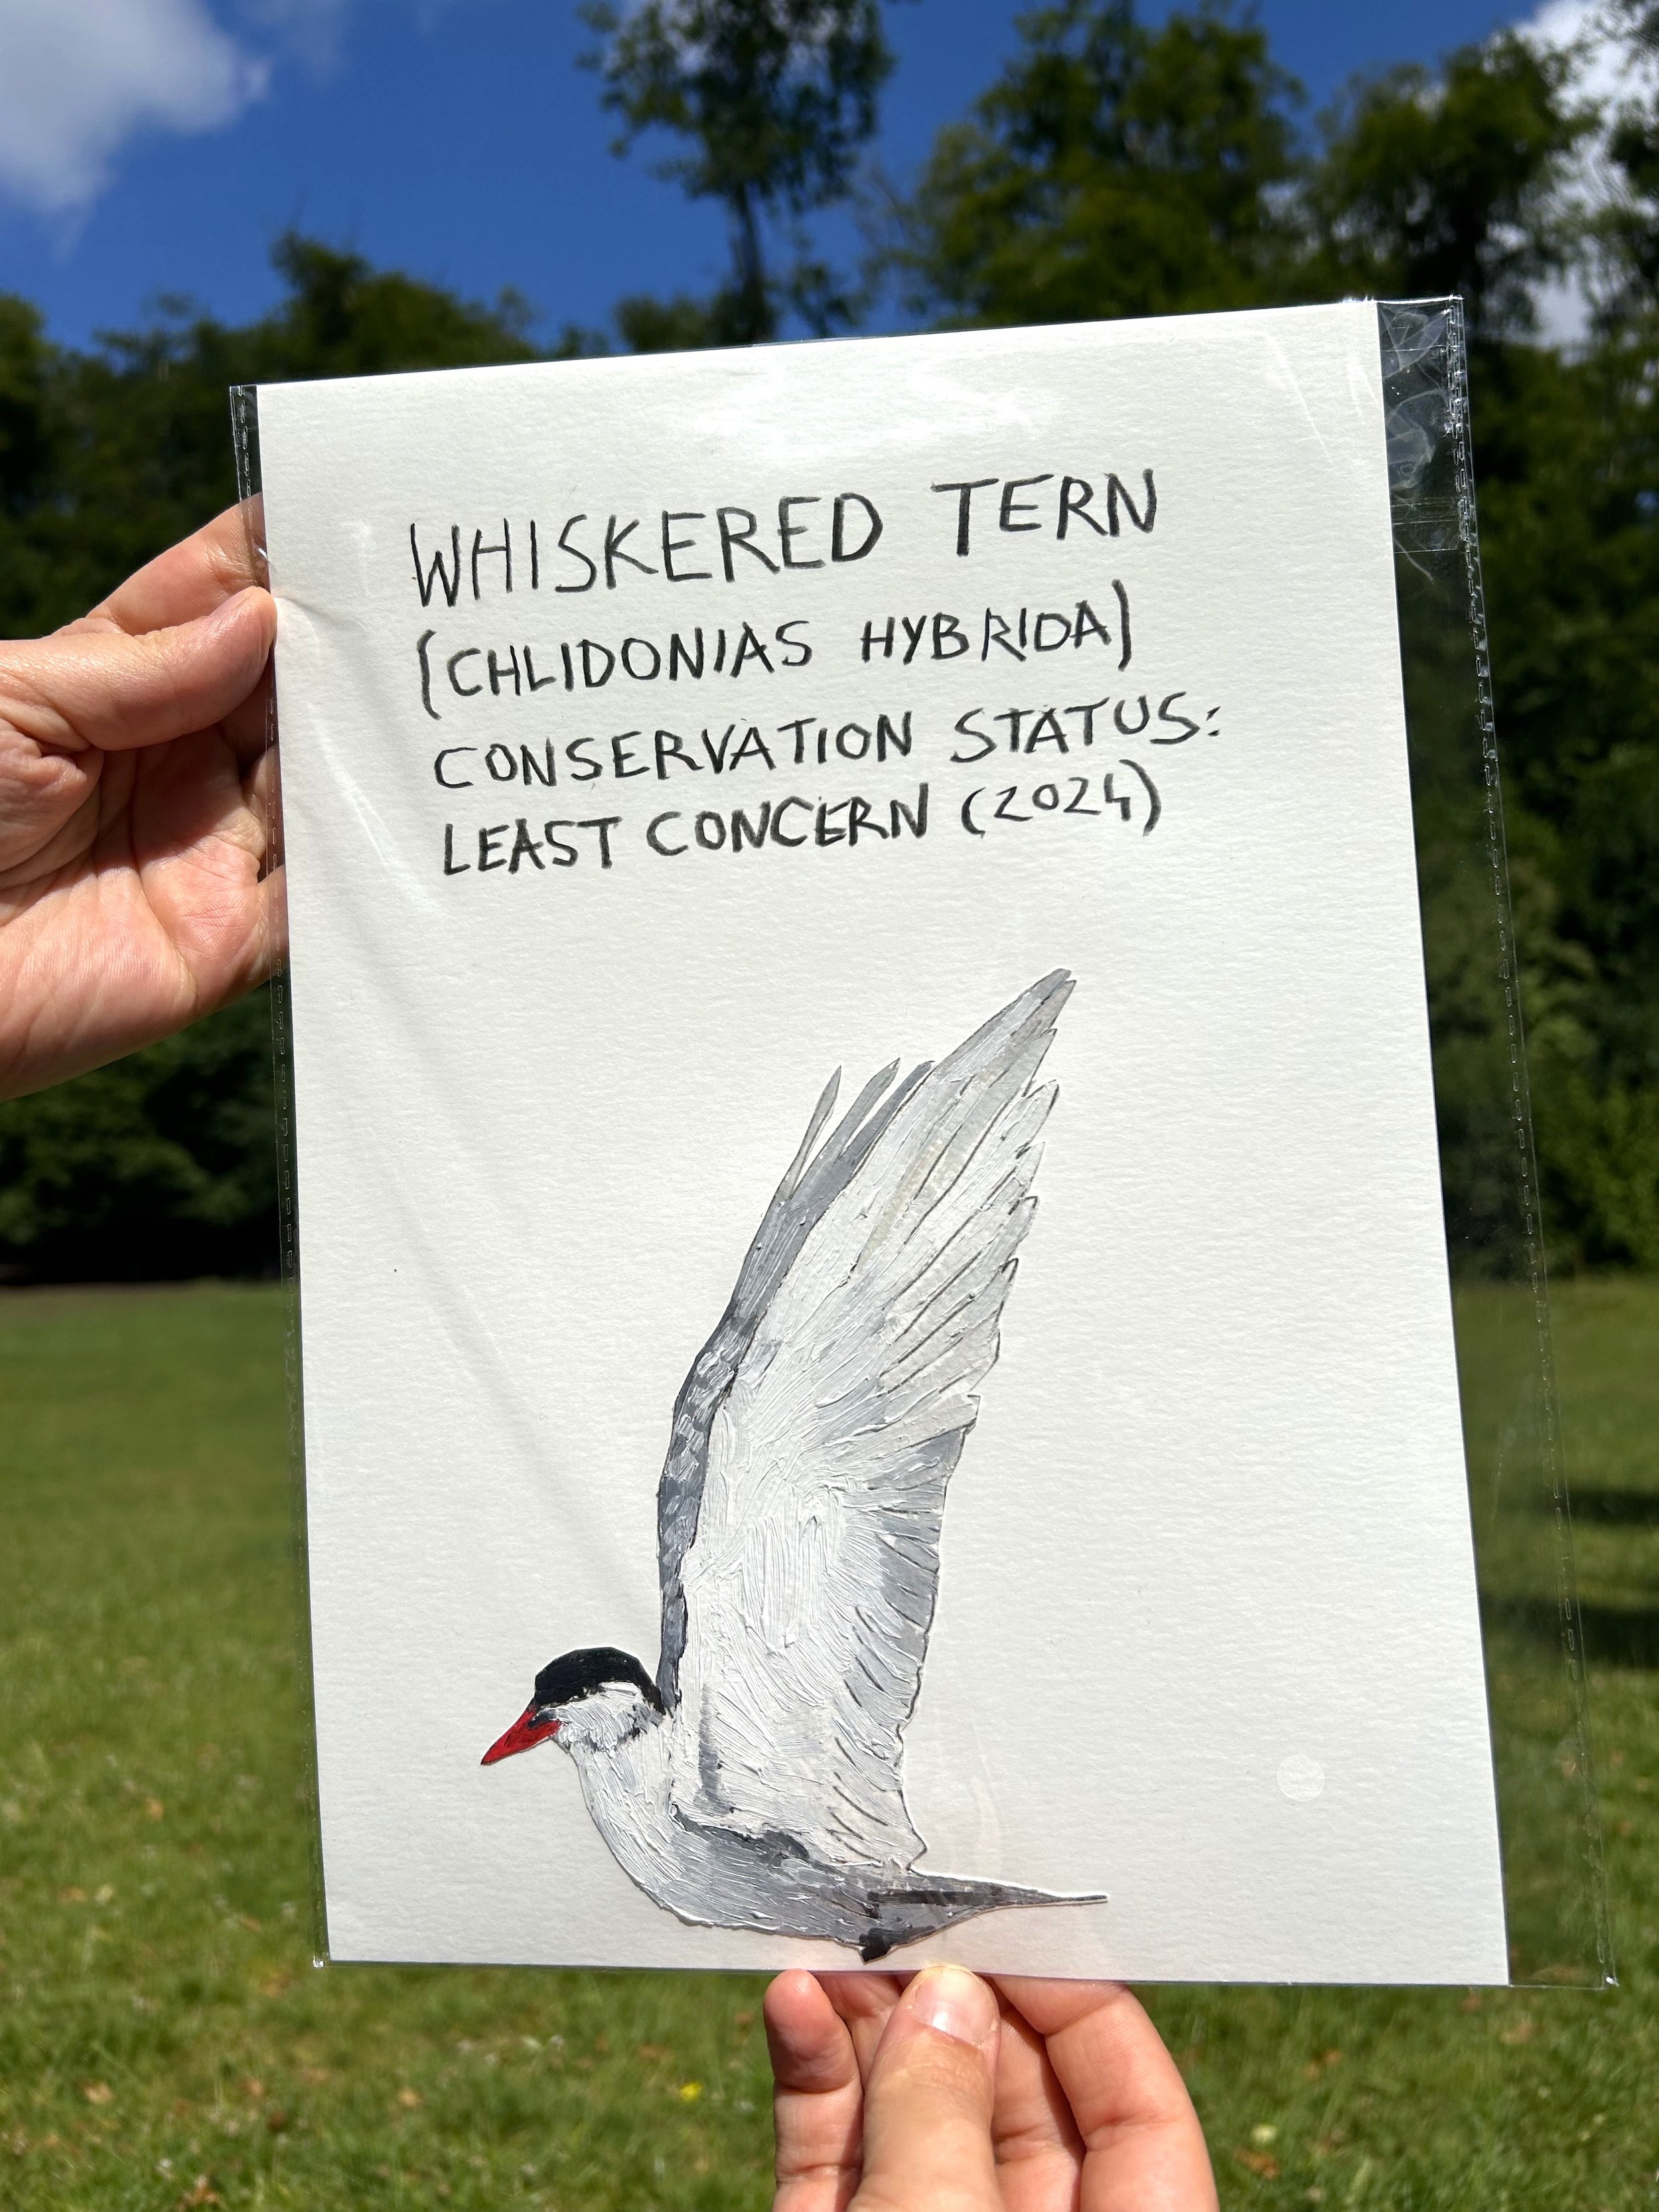 WHISKERED TERN
(CHLIDONIAS HYBRIDA)
CONSERVATION STATUS:
LEAST CONCERN (2024)